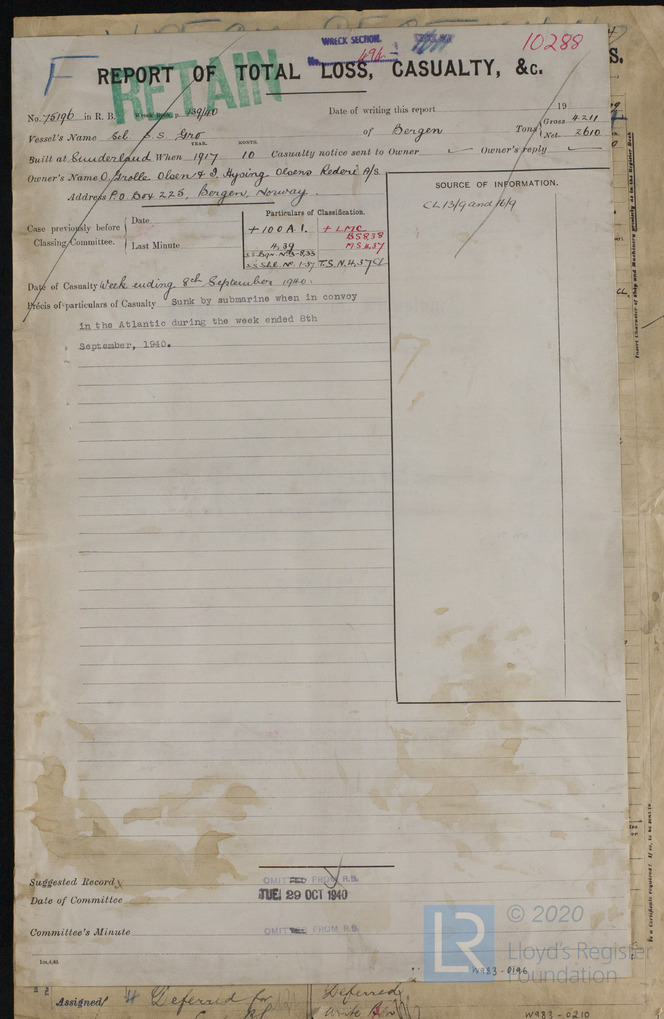 WRECK SECTION.
No. 494
10288
F
RETAIN
REPORT OF TOTAL LOSS, CASUALTY, &c.
No. 75196 in R. B. 39/40
Date of writing this report 19
Vessel's Name S S Gro of Bergen Tons Gross 4211 Net 2610
YEAR. MONTH.
Built at Sunderland When 1917 10 Casualty notice sent to Owner Owner's reply
Owner's Name O. Grolle Olsen & I. Hysing Olsens Rederi A/S
Address P.O Box 225, Bergen, Norway.
SOURCE OF INFORMATION.
CL 13/9 and 16/9
Particulars of Classification.
Case previously before Classing Committee.
Date
Last Minute
+100 A.1. + LMC
BS 8,38
4,39 MS 4,37
T.S.N.4,37 CL
Date of Casualty Week ending 8th September 1940.
Précis of particulars of Casualty Sunk by submarine when in convoy
in the Atlantic during the week ended 8th
September, 1940.
Suggested Record OMITTED FROM R.B.
TUE 29 OCT 1940
Date of Committee
Committee's Minute OMITTED FROM R.B.
LR
© 2020
Lloyd's Register
Foundation
W983-0196
Assigned Deferred for
Deferred
W983-0210